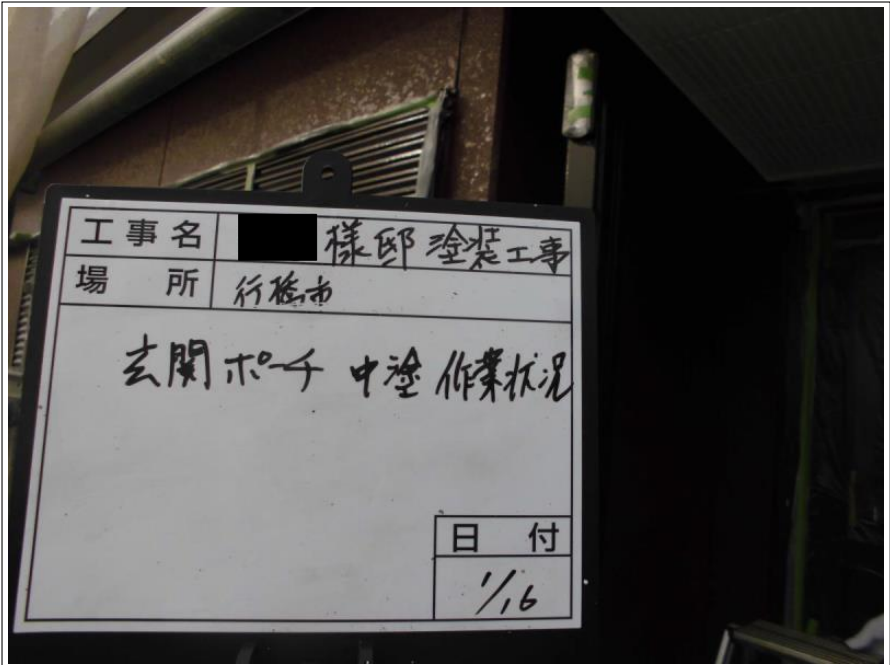 工事名 様邸 塗装工事
場所 行橋市
玄関ポーチ 中塗 作業状況
日付
1/16